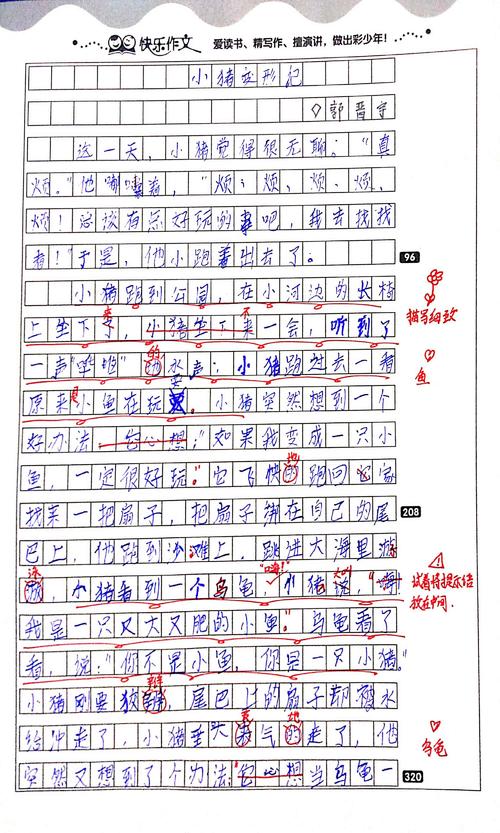 快乐作文 爱读书、精写作、擅演讲，做出彩少年！
小猪变形记
◇郭晋宇
这一天，小猪觉得很无聊：“真
烦。”他嘟囔着，“烦、烦、烦、烦、
烦！总该有点好玩的事吧，我去找找
看！于是，他小跑着出去了。
96
小猪跑到公园，在小河边的长椅
描写细致
上坐下了，小猪坐下来一会，听到了
来 不
一声“哗啦”的水声：小猪跑过去一看
的
鱼
原来小鱼在玩。小猪突然想到一个
是
好办法，它心想：“如果我变成一只小
鱼，一定很好玩。”它飞快的跑回它家
地
找来一把扇子，把扇子绑在自己的尾
208
巴上，他跑到沙滩上，跳进大海里游
泳 “嗨！” 大叫
试着将提示语放在中间.
小猪看到一个乌龟，小猪说，“嗨
我是一只又大又肥的小鱼。”乌龟看了
看，说：“你不是小鱼，你是一只小猪。”
辩
小猪刚要狡，尾巴上的扇子却被水
丧 地
给冲走了，小猪垂头气的走了，他
乌龟
突然又想到了个办法：它心想当乌龟一
320